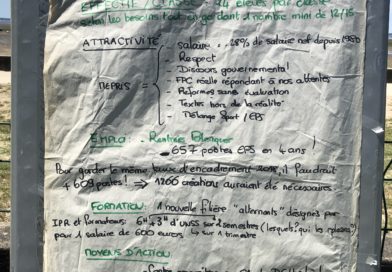 EFFECTIF / CLASSE = 24 élèves par classe
selon les besoins tout en gardant 1 nombre mini de 12/15
ATTRACTIVITÉ
- salaire = - 28% de salaire net depuis 1980
- Respect
- Discours gouvernemental
- FPC réelle répondant à nos attentes
MEPRIS
- Réformes sans évaluation
- Textes hors de la réalité
- Mélange Sport / EPS
EMPLOI - Rentrée Blanquer
- 657 postes EPS en 4 ans !
Pour garder le même taux d'encadrement il faudrait
+ 609 postes ! ⇒ 1266 créations auraient été nécessaires
FORMATION : 1 nouvelle filière "alternants" désignés par
IPR et Formateurs : 6H + 3H d'UNSS sur 2 semestres (lesquels, qui les
pour 1 salaire de 600 euros. ↳ sur 1 trimestre
MOYENS D'ACTION